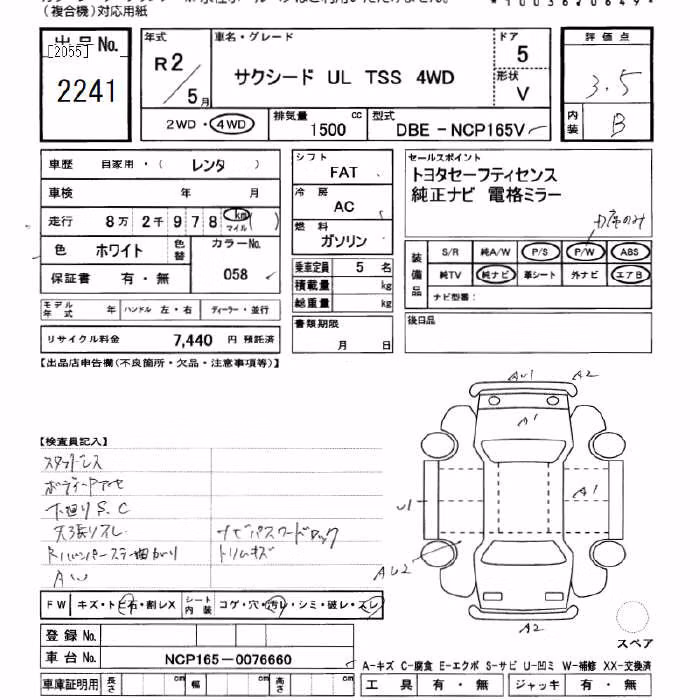 (複合機)対応用紙
出品No.
[2055]
2241
年式 R2/5月
車名・グレード
サクシード UL TSS 4WD
ドア 5
形状 V
評価点
3.5
内装 B
2WD・4WD
排気量 1500 cc
型式 DBE-NCP165V
車歴 自家用・( レンタ )
車検 年 月
走行 8万 2千 9 7 8 km マイル ( )
色 ホワイト 色替 カラーNo.
保証書 有・無 058
モデル年式 年 ハンドル 左・右 ディーラー・並行
リサイクル料金 7,440 円 預託済
シフト
FAT
冷房
AC
燃料
ガソリン
乗車定員 5 名
積載量 kg
総重量 kg
書類期限
月 日
セールスポイント
トヨタセーフティセンス
純正ナビ 電格ミラー
装備品
S/R 純A/W P/S P/W ABS
純TV 純ナビ 革シート 外ナビ エアB
ナビ型番:
後日品
【出品店申告欄(不良箇所・欠品・注意事項等)】
AU1 A2
A1
A1
U1
AU2
A2
スペア
【検査員記入】
下廻りS.C
ナビパスワードロック
トリムキズ
AW
FW キズ・トビ石・割レX
シート内装 コゲ・穴・汚レ・シミ・破レ・スレ
登録No.
車台No. NCP165-0076660
A-キズ C-腐食 E-エクボ S-サビ U-凹ミ W-補修 XX-交換済
車庫証明用 長さ cm 幅 cm 高さ cm
工具 有・無 ジャッキ 有・無